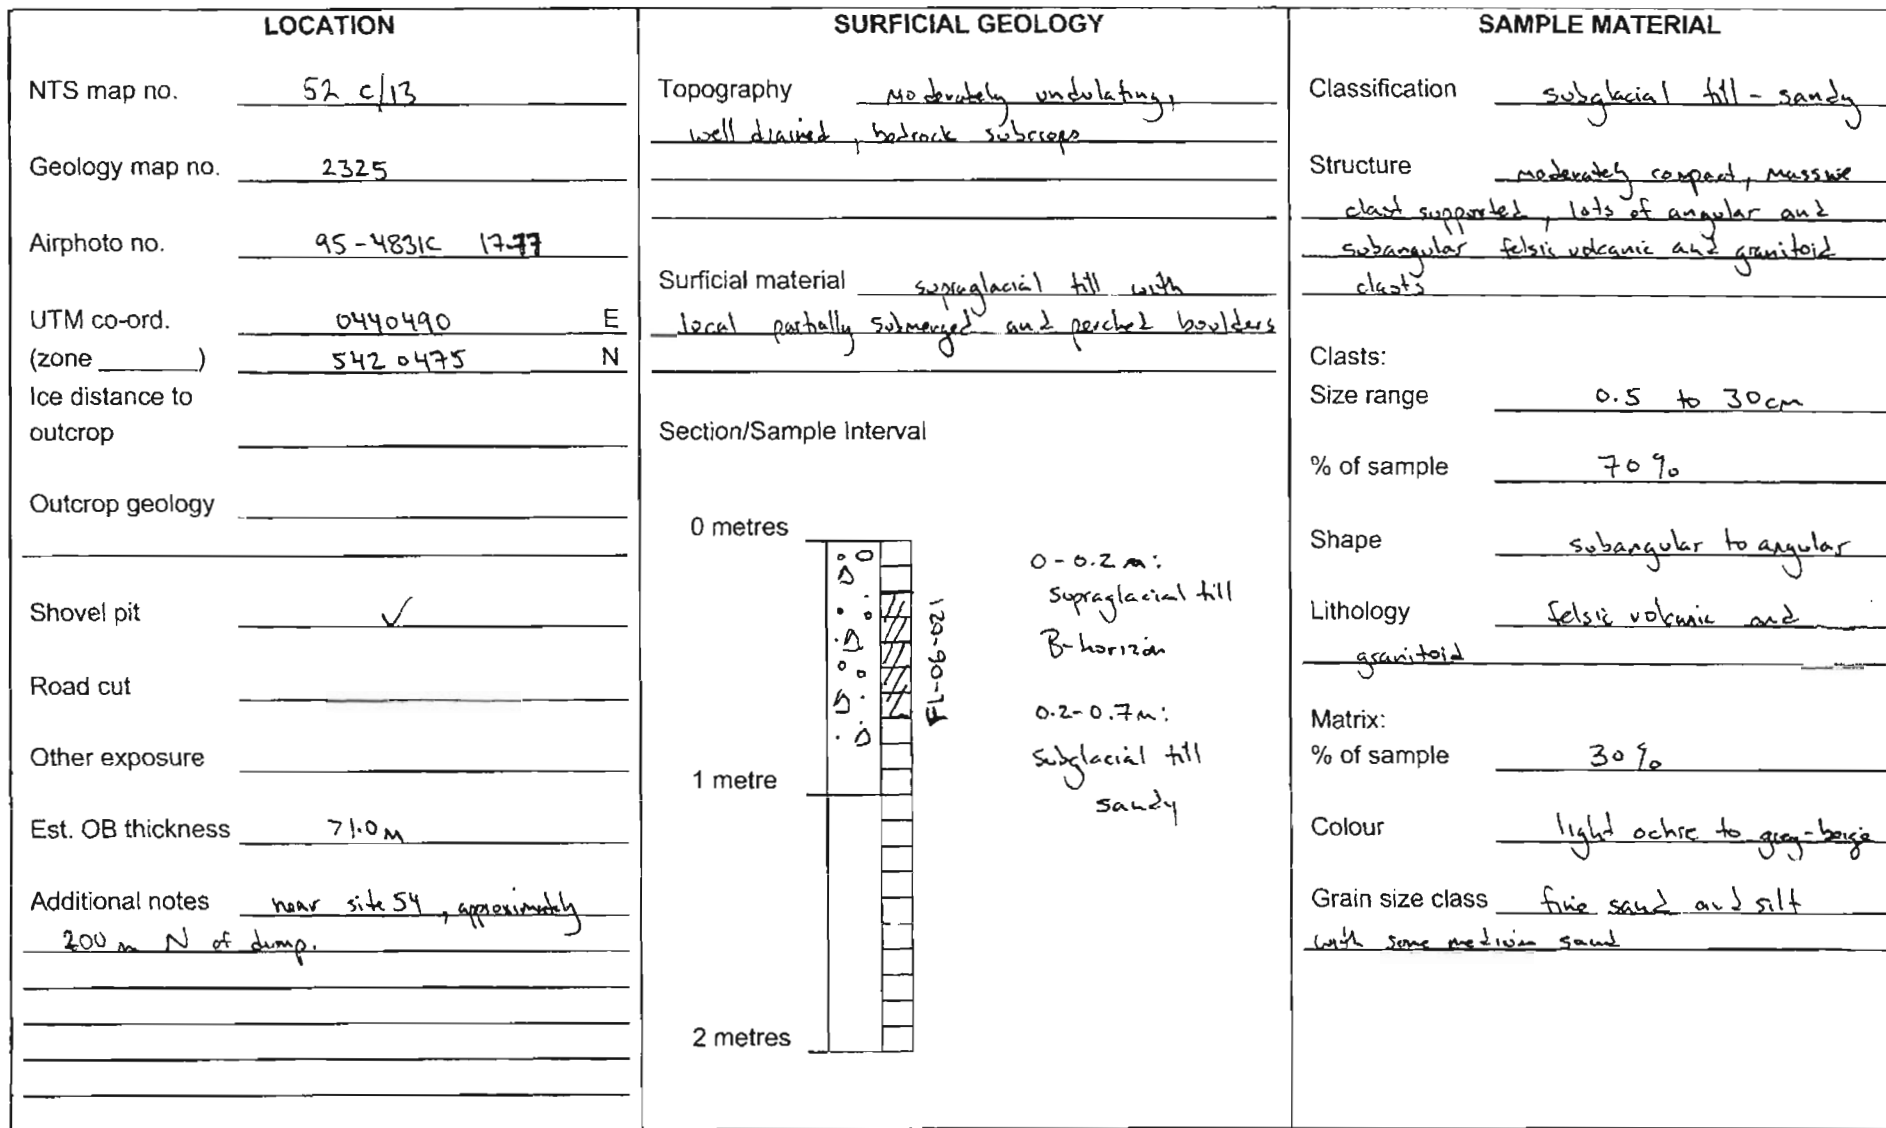 LOCATION
NTS map no. 52 C/13
Geology map no. 2325
Airphoto no. 95-4831C 17-77
UTM co-ord. 0440490 E
(zone ______) 5420475 N
Ice distance to
outcrop
Outcrop geology
Shovel pit ✓
Road cut
Other exposure
Est. OB thickness >1.0 m
Additional notes near site 54, approximately
200 m N of dump.
SURFICIAL GEOLOGY
Topography Moderately undulating,
well drained, bedrock subcrops
Surficial material supraglacial till with
local partially submerged and perched boulders
Section/Sample Interval
0 metres
1 metre
2 metres
FL-06-021
0-0.2 m:
supraglacial till
B-horizon
0.2-0.7m:
Subglacial till
sandy
SAMPLE MATERIAL
Classification subglacial till - sandy
Structure moderately compact, massive
clast supported, lots of angular and
subangular felsic volcanic and granitoid
clasts
Clasts:
Size range 0.5 to 30cm
% of sample 70%
Shape subangular to angular
Lithology felsic volcanic and
granitoid
Matrix:
% of sample 30%
Colour light ochre to grey-beige
Grain size class fine sand and silt
with some medium sand